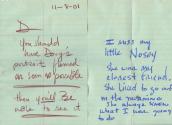 11-8-01
D
You should
have Doug's
portrait framed
as soon as possible
then you'll Be
able to see it
I miss my
little Nosey
she was my
closest friend.
She liked to go out
in the
She always knew
what I was going
to do